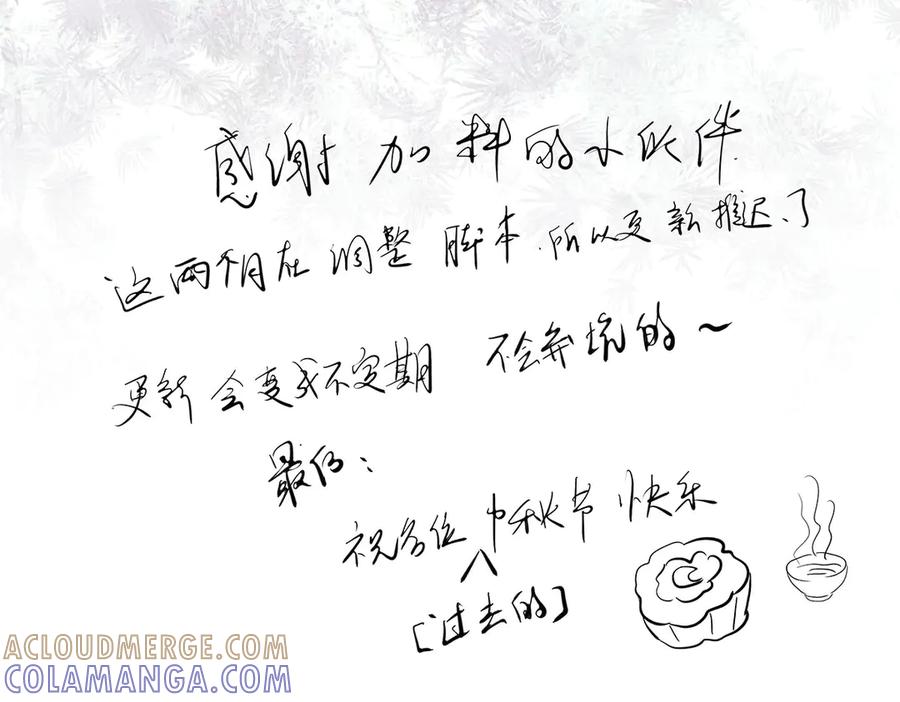 感谢 加料的小伙伴.
这两个月在 调整 脚本.所以更新推迟了
更新会变成不定期 不会弃坑的~
最后：
祝各位中秋节 快乐
[过去的]
ACLOUDMERGE.COM
COLAMANGA.COM